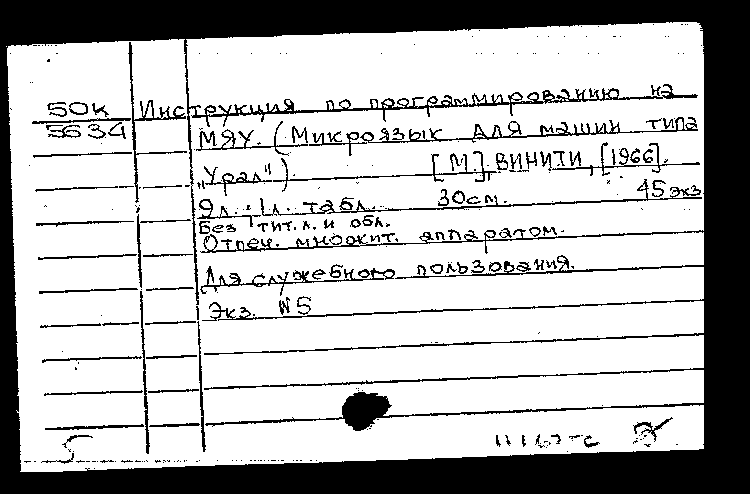 50к Инструкция по программированию на
5634 МЯУ. (Микроязык для машин типа
„Урал"). [М.], ВИНИТИ, [1966].
9л., 1л. табл. 30см. 45 экз
Без тит.л. и обл.
Отпеч. множит. аппаратом.
Для служебного пользования.
Экз. №5
5